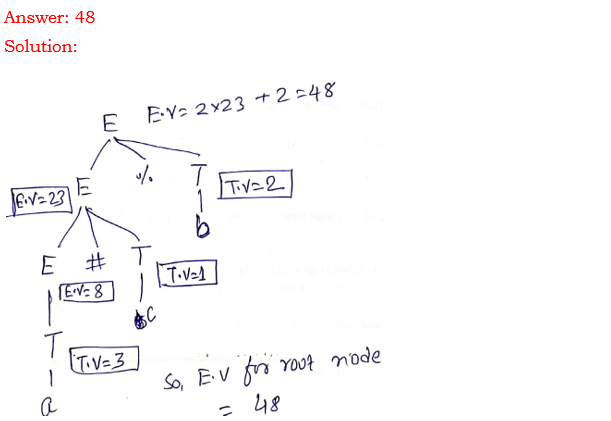 Answer: 48
Solution:
E E.V = 2×23 + 2 = 48
E.V=23 E % T T.V=2
b
E # T T.V=1
E.V=8
c
T T.V=3
a
So, E.V for root node
= 48